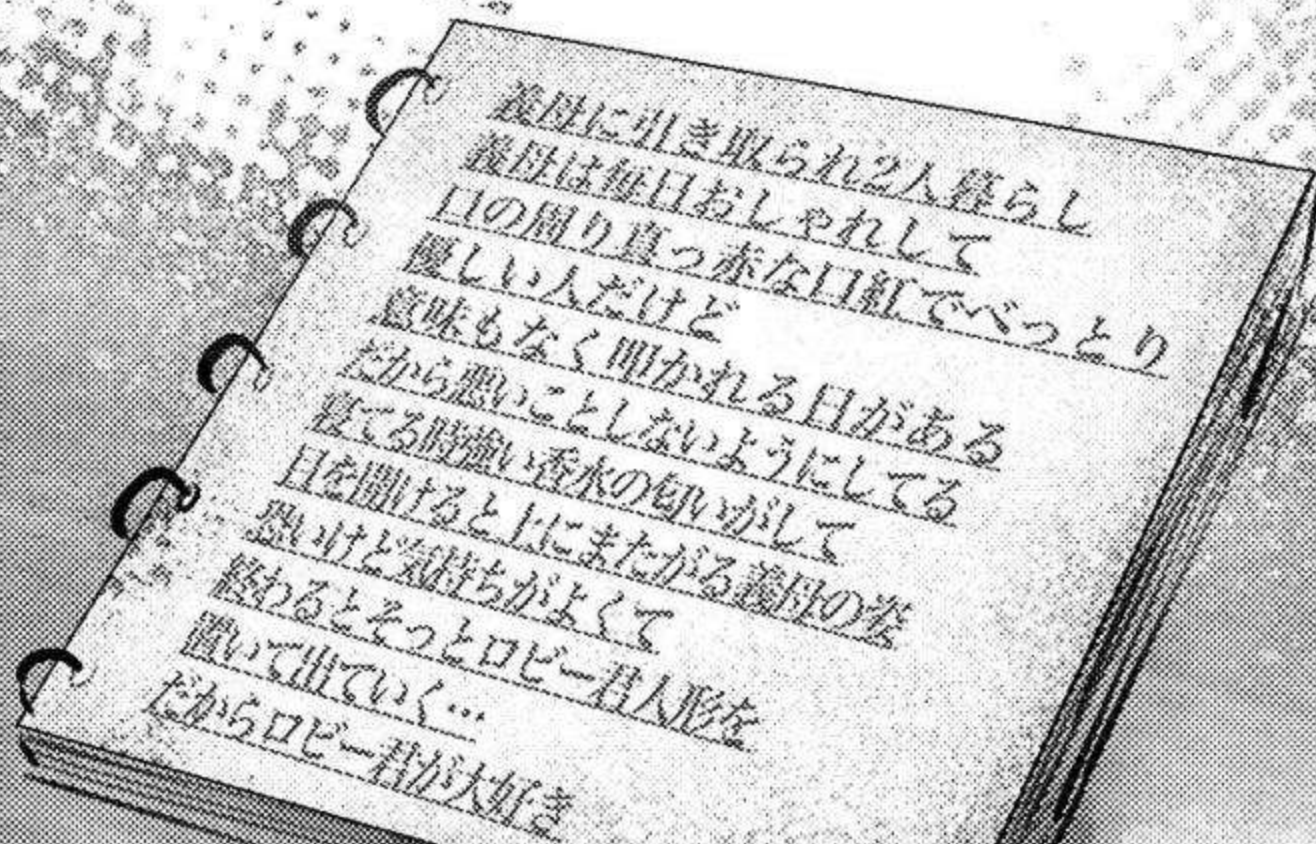 義母に引き取られ2人暮らし
義母は毎日おしゃれして
口の周り真っ赤な口紅でべっとり
優しい人だけど
意味もなく叩かれる日がある
だから悪いことしないようにしてる
寝てる時強い香水の匂いがして
目を開けると上にまたがる義母の姿
恐いけど気持ちがよくて
終わるとそっとロビー君人形を
置いて出ていく…
だからロビー君が大好き